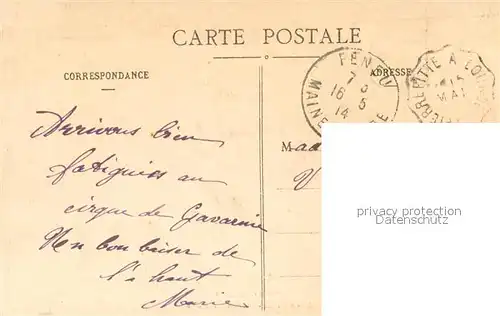 CARTE POSTALE
CORRESPONDANCE
ADRESSE
FENEU
7 5
16 5
14
MAINE
PIERREFITTE A
MAI
Arrivons bien
fatiguées au
cirque de Gavarnie
Un bon baiser de
là haut
Marie
Mad
V
privacy protection
Datenschutz